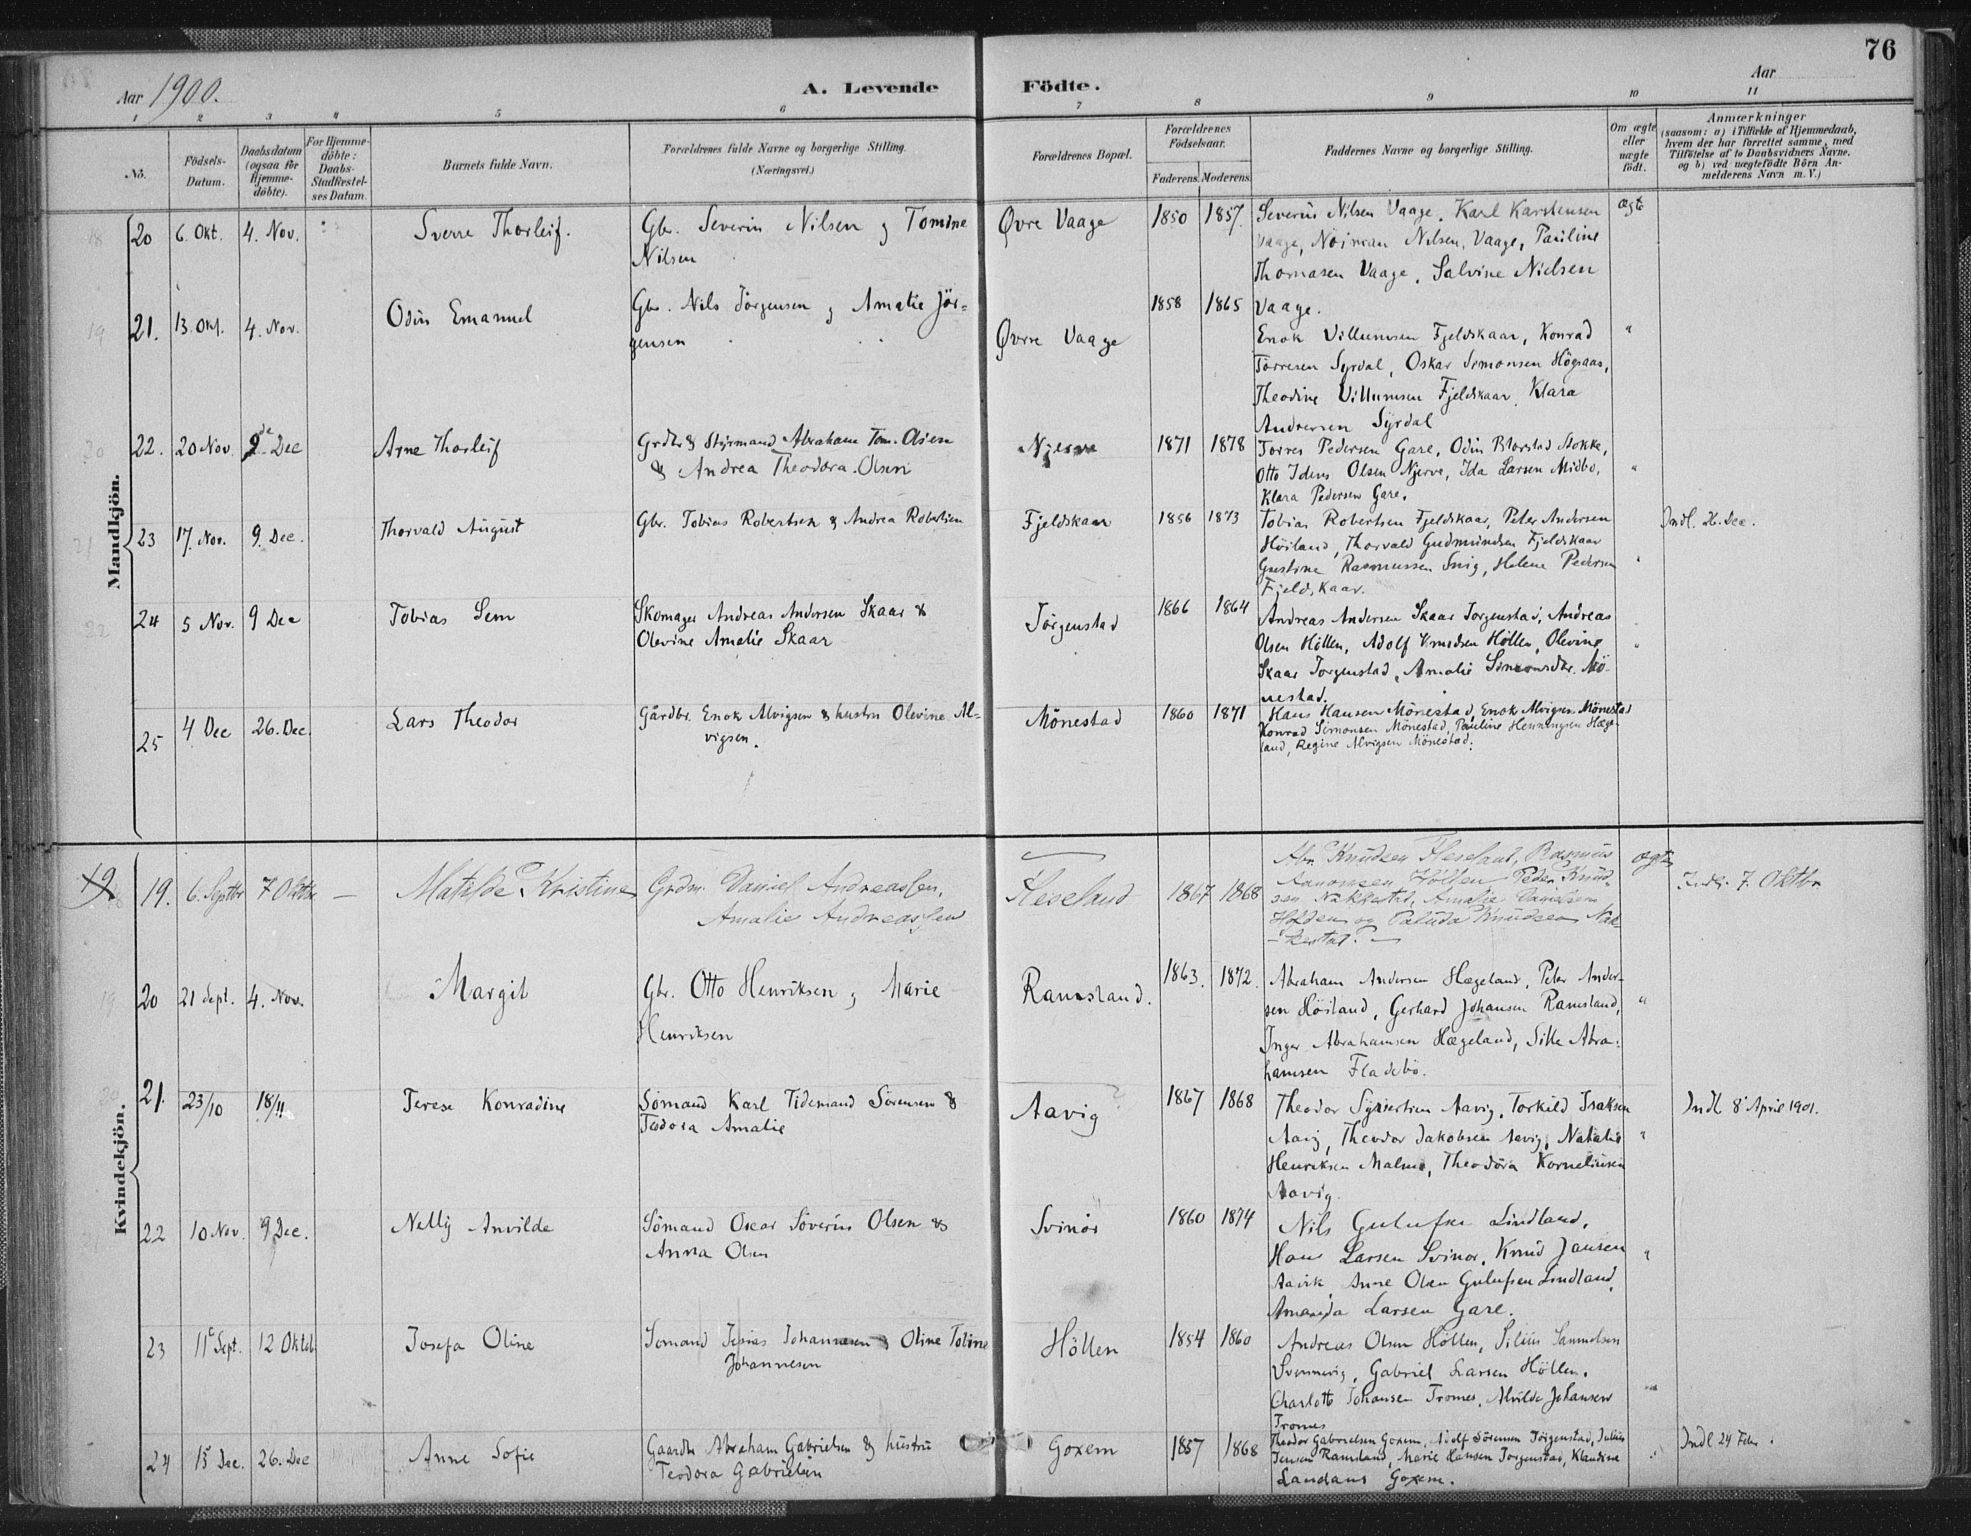 76
Aar 1900.
A. Levende Födte.
Aar
1 2 3 4 5 6 7 8 9 10 11
No.
Födsels-Datum.
Daabsdatum (ogsaa for Hjemme-döbte).
For Hjemme-döbte: Daabs-Stadfæstel-ses Datum.
Barnets fulde Navn.
Forældrenes fulde Navne og borgerlige Stilling. (Næringsvei.)
Forældrenes Bopæl.
Forældrenes Födselsaar.
Faderens. Moderens.
Faddernes Navne og borgerlige Stilling.
Om ægte eller uægte födt.
Anmærkninger
(saasom: a) i Tilfælde af Hjemmedaab, hvem der har forrettet samme, med Tilföielse af to Daabsvidners Navne, og b) ved uægtefödte Börn An-melderens Navn m. V.)
Mandkjön.
20 6. Okt. 4. Nov. Sverre Thorleif. Gbr. Severin Nilsen og Tomine Nilsen Øvre Vaage 1850 1857. Severin Nilsen Vaage, Karl Karstensen ægte
Vaage, Nilsen, Vaage, Pauline
Thomasen Vaage, Salvine Nielsen
Vaage.
21. 13. Okt. 4. Nov. Odin Emanuel Gbr. Nils Jörgensen og Amalie Jör-gensen Øvre Vaage 1858 1865
Enok Villumsen Fjeldskaar, Konrad "
Torresen Syrdal, Oskar Simonsen Högsaas,
Theodine Villumsen Fjeldskaar, Klara
Andersen Syrdal
22. 20 Nov. 9de Dec Arne Thorleif Grdbr & Styrmand Abraham Tom. Olsen & Andrea Theodora Olsen Njerve 1871 1878 Torres Pedersen Gare, Odin Stokke,
Otto Olsen Njerve, Ida Larsen Midbö, "
Klara Pedersen Gare.
23 17. Nov. 9. Dec. Thorvald August Gbr. Tobias Robertsen & Andrea Robertsen Fjeldskaar 1856 1873 Tobias Robertsen Fjeldskaar, Peter Andersen Indl. 26. Dec.
Höiland, Thorvald Gudmundsen Fjeldskaar
Rasmussen Snig, Helene Pedersen "
Fjeldskaar.
24 5 Nov. 9 Dec Tobias Sem Skomager Andreas Andersen Skaar & Olevine Amalie Skaar Jörgenstad 1866 1864 Andreas Andersen Skaar Jorgenstad, Andreas
Olsen Höllen, Adolf Knudsen Höllen, Olevine "
Skaar Jorgenstad, Amalie Simonsdtr. Mö-
nestad.
25 4 Dec 26. Dec. Lars Theodor Gårdbr. Enok Alvigsen & hustru Olevine Al-vigsen. Mönestad 1860 1871 Hans Hansen Mönestad, Enok Alvigsen Mönestad
Konrad Simonsen Mönestad, Pauline Henningsen Hæge-
land, Regine Alvigsen Mönestad.
Kvindekjön.
19 19. 6. Septbr 7 Oktbr — Matilde Kristine Grdm. Daniel Andreassen, Amalie Andreassen Heseland 1867 1868 Abr. Knudsen Heseland, Rasmus ægte Indl. 7. Oktbr
Aanonsen Höllen Peder Knud-
sen Nakkestad, Amalie Danielsen
Holden og Paluda Knudsen Nak-
kestad. —
20 21 Sept. 4. Nov. Margit Gbr. Otto Henriksen og Marie Henriksen Ramsland. 1863. 1872. Abraham Andersen Hægeland, Peter Ander-
sen Höiland, Gerhard Johansen Ramsland, "
Inger Abrahamsen Hægeland, Silla Abra-
hamsen Fladebö.
21. 23/10 18/11 Terese Konradine Sömand Karl Tidemand Sörensen & Teodora Amalie Aavig 1867 1868 Theodor Syvertsen Aavig, Torkild Isaksen Indl 8 April 1901.
Aavig, Theodor Jakobsen Aavig, Natalie "
Henriksen Malmö, Theodora Korneliusen
Aavig.
22 10 Nov. 9 Dec. Nelly Anvilde Sömand Oscar Söverin Olsen & Anna Olsen Svinör 1860 1874 Nils Gulufsen Lindland,
Hans Larsen Svinor, Knud Jansen "
Aavik, Anne Olsen Gulufsen Lindland,
Amanda Larsen Gare.
23 11 Sept. 12 Oktob Josefa Oline Somand Johannesen & Oline Tobine Johannesen Höllen 1854 1860 Andreas Olsen Höllen, Silius Samuelsen
Svennevig, Gabriel Larsen Höllen,
Charlotte Johansen Tromes, Alvilde Johansen
Tromes
24 15 Dec. 26. Dec Anne Sofie Gaardbr Abraham Gabrielsen & hustru Teodora Gabrielsen Goxem 1857 1868 Theodor Gabrielsen Goxem, Adolf Sörensen Jörgenstad, Julius Indl 24 Febr.
Jensen Ramsland, Marie Hansen Jorgenstad, Klaudine
Goxem.